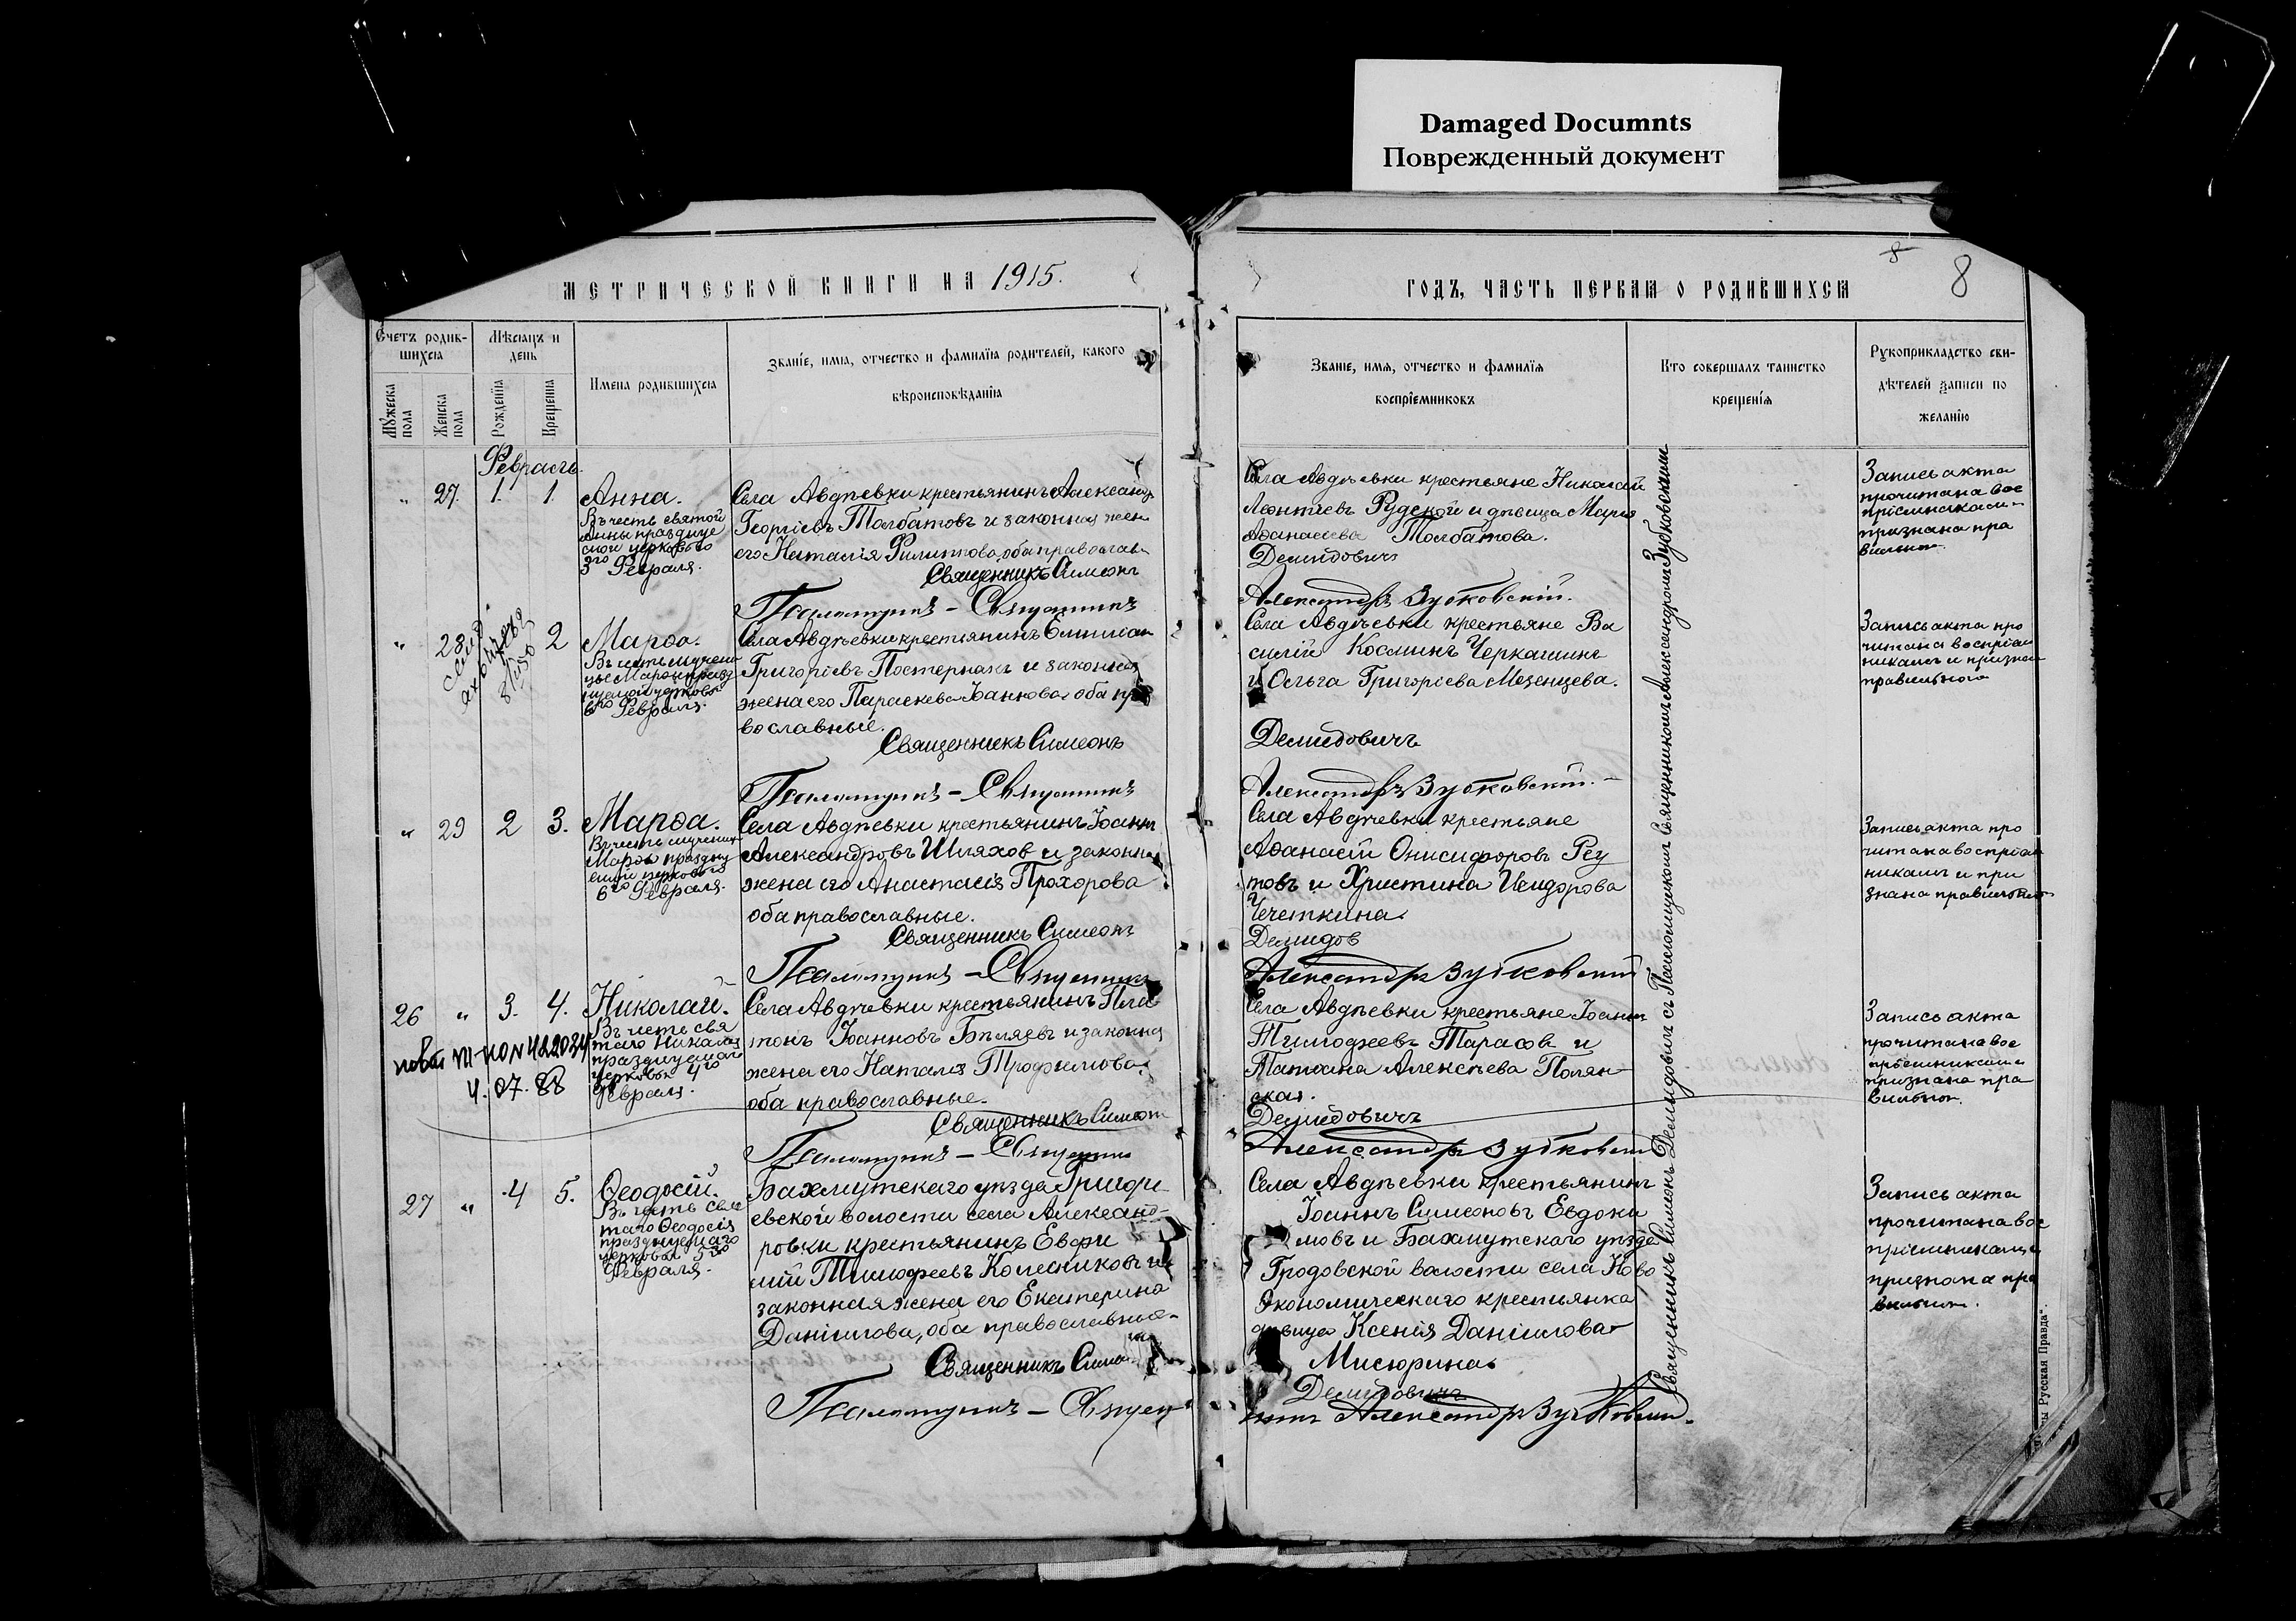 Damaged Documnts
Поврежденный документ
МЕТРИЧЕСКОЙ КНИГИ НА 1915.
ГОДЪ, ЧАСТЬ ПЕРВАЯ О РОДИВШИХСЯ
8
8
Счетъ родив-
шихся
Мѣсяцъ и
день
Мужеска
пола
Женска
пола
Рожденія
Крещенія
Имена родившихся
Званіе, имя, отчество и фамилія родителей, какого
вѣроисповѣданія
Званіе, имя, отчество и фамилія
воспріемниковъ
Кто совершалъ таинство
крещенія
Рукоприкладство сви-
дѣтелей записи по
желанію
Февраль.
" 27. 1. 1.
Анна.
Въ честь святой
Анны празднуе
мой церковью
3го Февраля.
Села Авдѣевки крестьянинъ Александръ
Георгіевъ Толбатовъ и законная жена
его Наталія Филиппова, оба православ
Священникъ Симеонъ
Псаломщикъ –
Села Авдѣевки крестьяне Николай
Леонтіевъ Рудской и дѣвица Марія
Аѳанасіева Толбатова.
Демидовичъ
Александръ Зубковскій.
Запись акта
прочитана вос
пріемникам и
признана пра
вильной.
" 28 2
Марѳа.
Въ честь мучени
цы Марѳы празд
нуемой церковью
6го Февраля.
Села Авдѣевки крестьянинъ Емиліан
Григоріевъ Постернакъ и законная
жена его Параскева Іоаннова оба пра
вославные.
Священникъ Симеонъ
Псаломщикъ –
Села Авдѣевки крестьяне Ва
силій Космин Черкашинъ
и Ольга Григоріева Мезенцева.
Демидовичъ
Александръ Зубковскій.
Запись акта про
читана воспріем
никамъ и признан
правильной
" 29 2 3.
Марѳа.
Въ честь мучениц
Марѳы праздну
емой церковью
6го Февраля.
Села Авдѣевки крестьянинъ Іоанн
Александровъ Шляхов и законна
жена его Анастасія Прохорова
оба православные.
Священникъ Симеонъ
Псаломщикъ –
Села Авдѣевки крестьяне
Аѳанасій Онисифоровъ Реу
товъ и Христина Исидорова
Чечеткина.
Демидов
Александръ Зубковскій
Запись акта про
читана воспріем
никамъ и при
знана правильной
26 " 3. 4.
Николай.
Въ честь свя
таго Николая
празднуемаго
церковью 4го
Февраля.
4.07.88
Села Авдѣевки крестьянинъ Пла
тонъ Іоанновъ Бѣляевъ и законная
жена его Наталія Трофимова,
оба православные.
Священникъ Симеон
Псаломщикъ –
Села Авдѣевки крестьяне Іоаннъ
Тимофеевъ Тарасов и
Татіана Алексѣева Полян
ская.
Демидовичъ
Александръ Зубковскій
Запись акта
прочитана вос
пріемникам и
признана пра
вильной.
27 " 4 5.
Ѳеодосій.
Въ честь свя
таго Ѳеодосія
празднуемаго
церковью 5го
Февраля.
Бахмутскаго уѣзда Григорь
евской волости села Александ-
ровки крестьянинъ Евфи
мій Тимофеевъ Колесниковъ и
законная жена его Екатерина
Даніилова, оба православные.
Священникъ Симе
Псаломщикъ –
Села Авдѣевки крестьянинъ
Іоаннъ Симеоновъ Евдоки
мовъ и Бахмутскаго уѣзда
Гродовской волости села Ново
Экономическаго крестьянка
дѣвица Ксенія Даніилова
Мисюрина
Демидовичъ
Александръ Зубковскій.
Запись акта
прочитана вос
пріемникамъ
признана пра
вильной.
Священникъ Симеонъ Демидовичъ съ Псаломщикомъ Священникомъ Александромъ Зубковскимъ
Русская Правда".